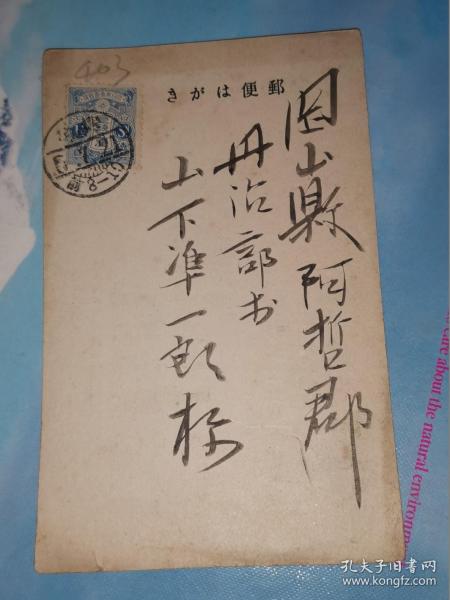 403
きがは便郵
岡山縣阿哲郡
丹治部村
山下準一郎様
care about the natural environm
孔夫子旧书网
www.kongfz.com